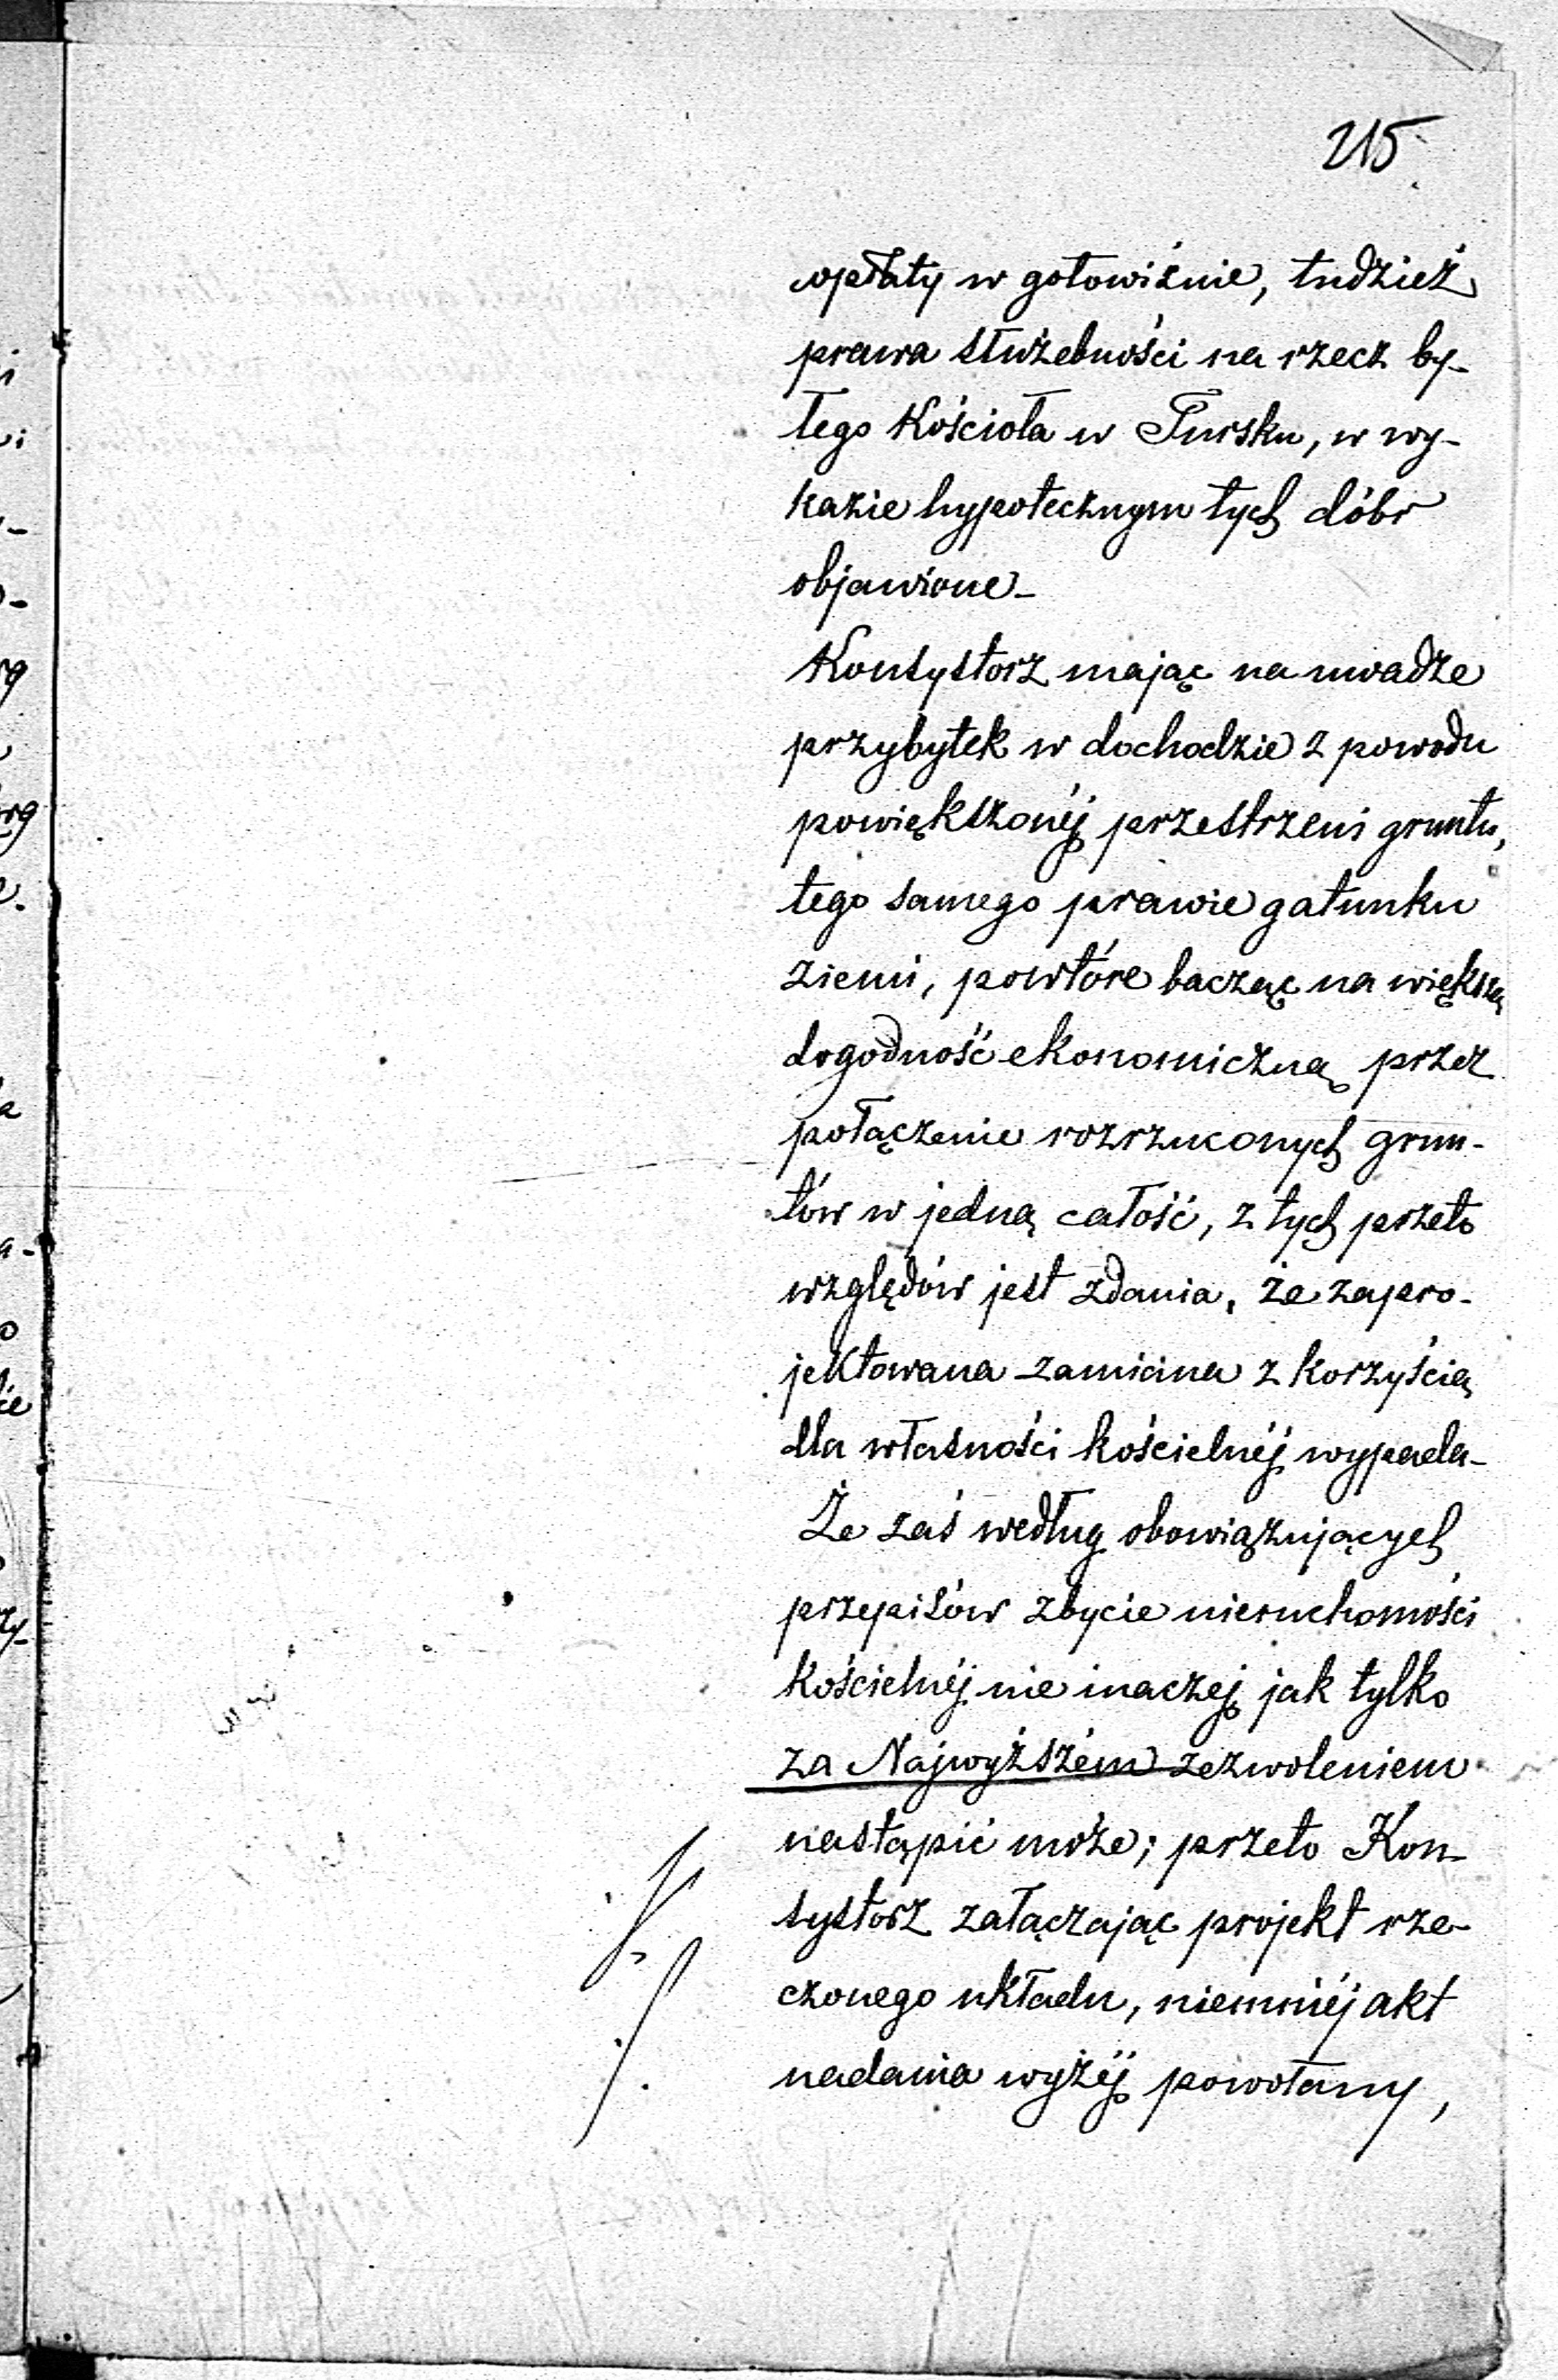 215
opłaty w gotowiźnie, tudzież
prawa służebności na rzecz by-
łego Kościoła w Tursku, w wy-
kazie hypotecznym tych dóbr
objawione_
Konsystorz mając na uwadze
przybytek w dochodzie z powodu
powiększonéj przestrzeni gruntu,
tego samego prawie gatunku
ziemi, powtóre bacząc na większą
dogodność ekonomiczną przez
połączenie rozrzuconych grun-
tów w jedną całość, z tych przeto
względów jest zdania, że zapro-
jektowana zamiana z korzyścią
dla własności kościelnéj wypada_
Że zaś według obowiązujących
przepisów zbycie nieruchomości
Kościelnéj nie inaczej jak tylko
za Najwyższém zezwoleniem
nastąpić może; przeto Kon-
systorz załączając projekt rze-
czonego układu, niemniéj akt
nadania wyżéj powołany,